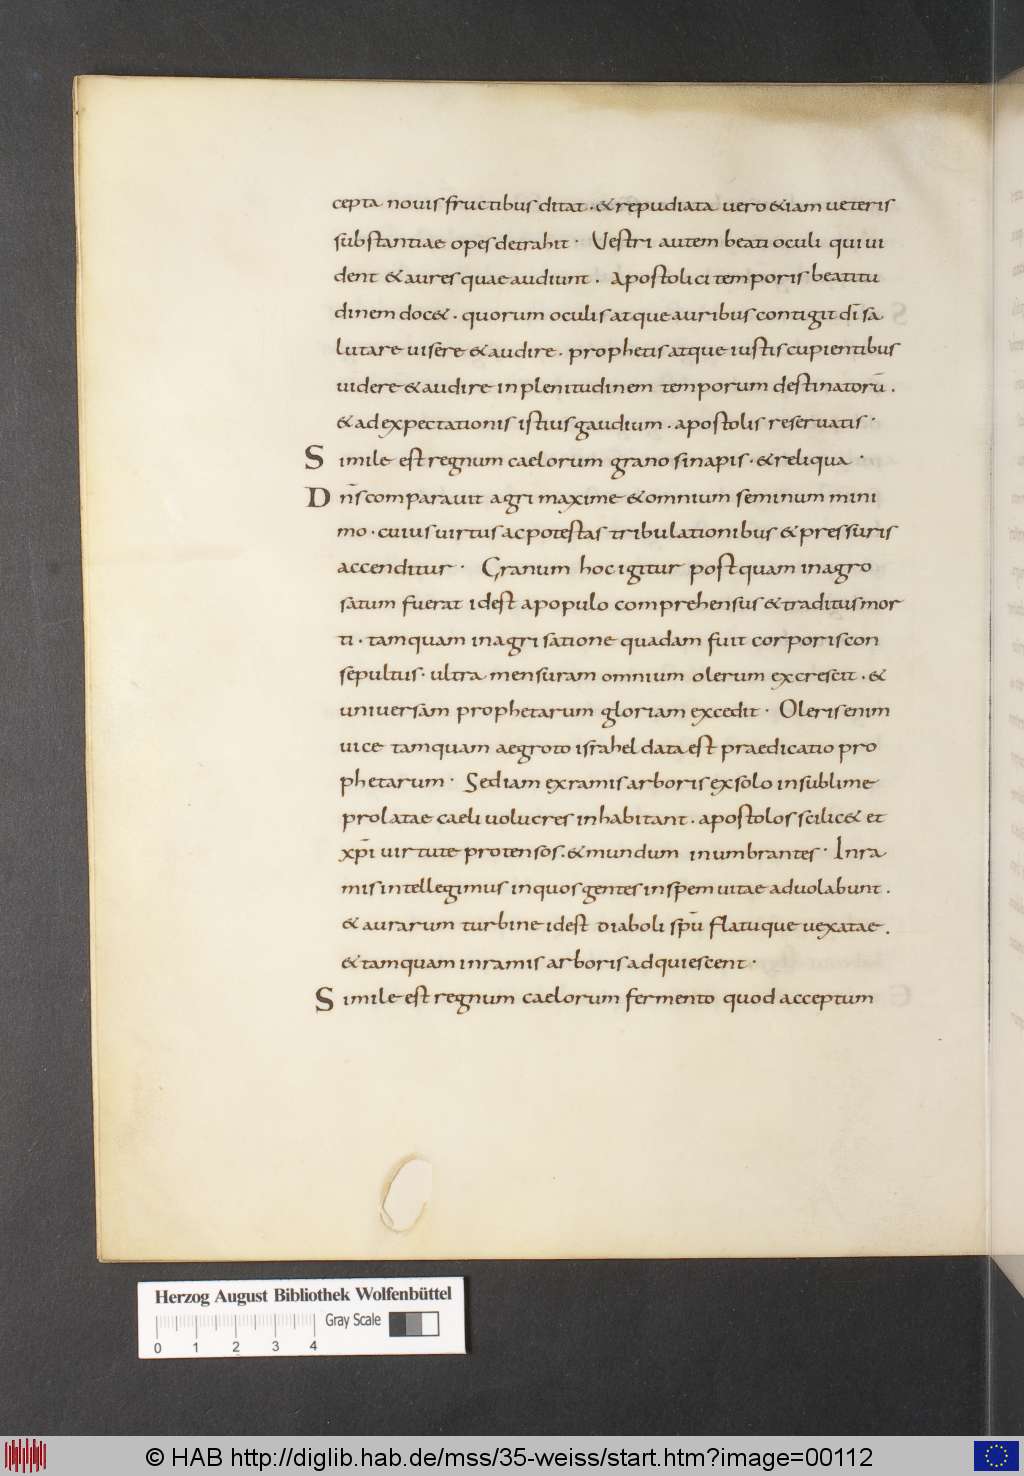 cepta nouis fructibus ditat · & repudiata uero &iam ueteris
substantiae opes detrahit · Uestri autem beati oculi qui ui
dent & aures quae audiunt . Apostolici temporis beatitu
dinem doc& . quorum oculis atque auribus contigit dī sa
lutare uisere & audire . prophetis atque iustis cupientibus
uidere & audire in plenitudinem temporum destinatorū .
& ad expectationis istius gaudium . apostolis reseruatis ·
Simile est regnum caelorum grano sinapis · & reliqua ·
Dn̄s comparauit agri maxime & omnium seminum mini
mo · cuius uirtus ac potestas tribulationibus & pressuris
accenditur · Granum hoc igitur postquam in agro
satum fuerat id est a populo comprehensus & traditus mor
ti · tamquam in agri satione quadam fuit corporis con
sepultus · ultra mensuram omnium olerum excrescit · &
uniuersam prophetarum gloriam excedit · Oleris enim
uice tamquam aegroto isrāhel data est praedicatio pro
phetarum · Sed iam ex ramis arboris ex solo in sublime
prolatae caeli uolucres inhabitant . apostolos scilic& et
xp̄i uirtute protensos . & mundum inumbrantes · In ra
mis intellegimus in quos gentes in spem uitae aduolabunt .
& aurarum turbine id est diaboli spū flatuque uexatae .
& tamquam in ramis arboris adquiescent ·
Simile est regnum caelorum fermento quod acceptum
Herzog August Bibliothek Wolfenbüttel
Gray Scale
0 1 2 3 4
© HAB http://diglib.hab.de/mss/35-weiss/start.htm?image=00112